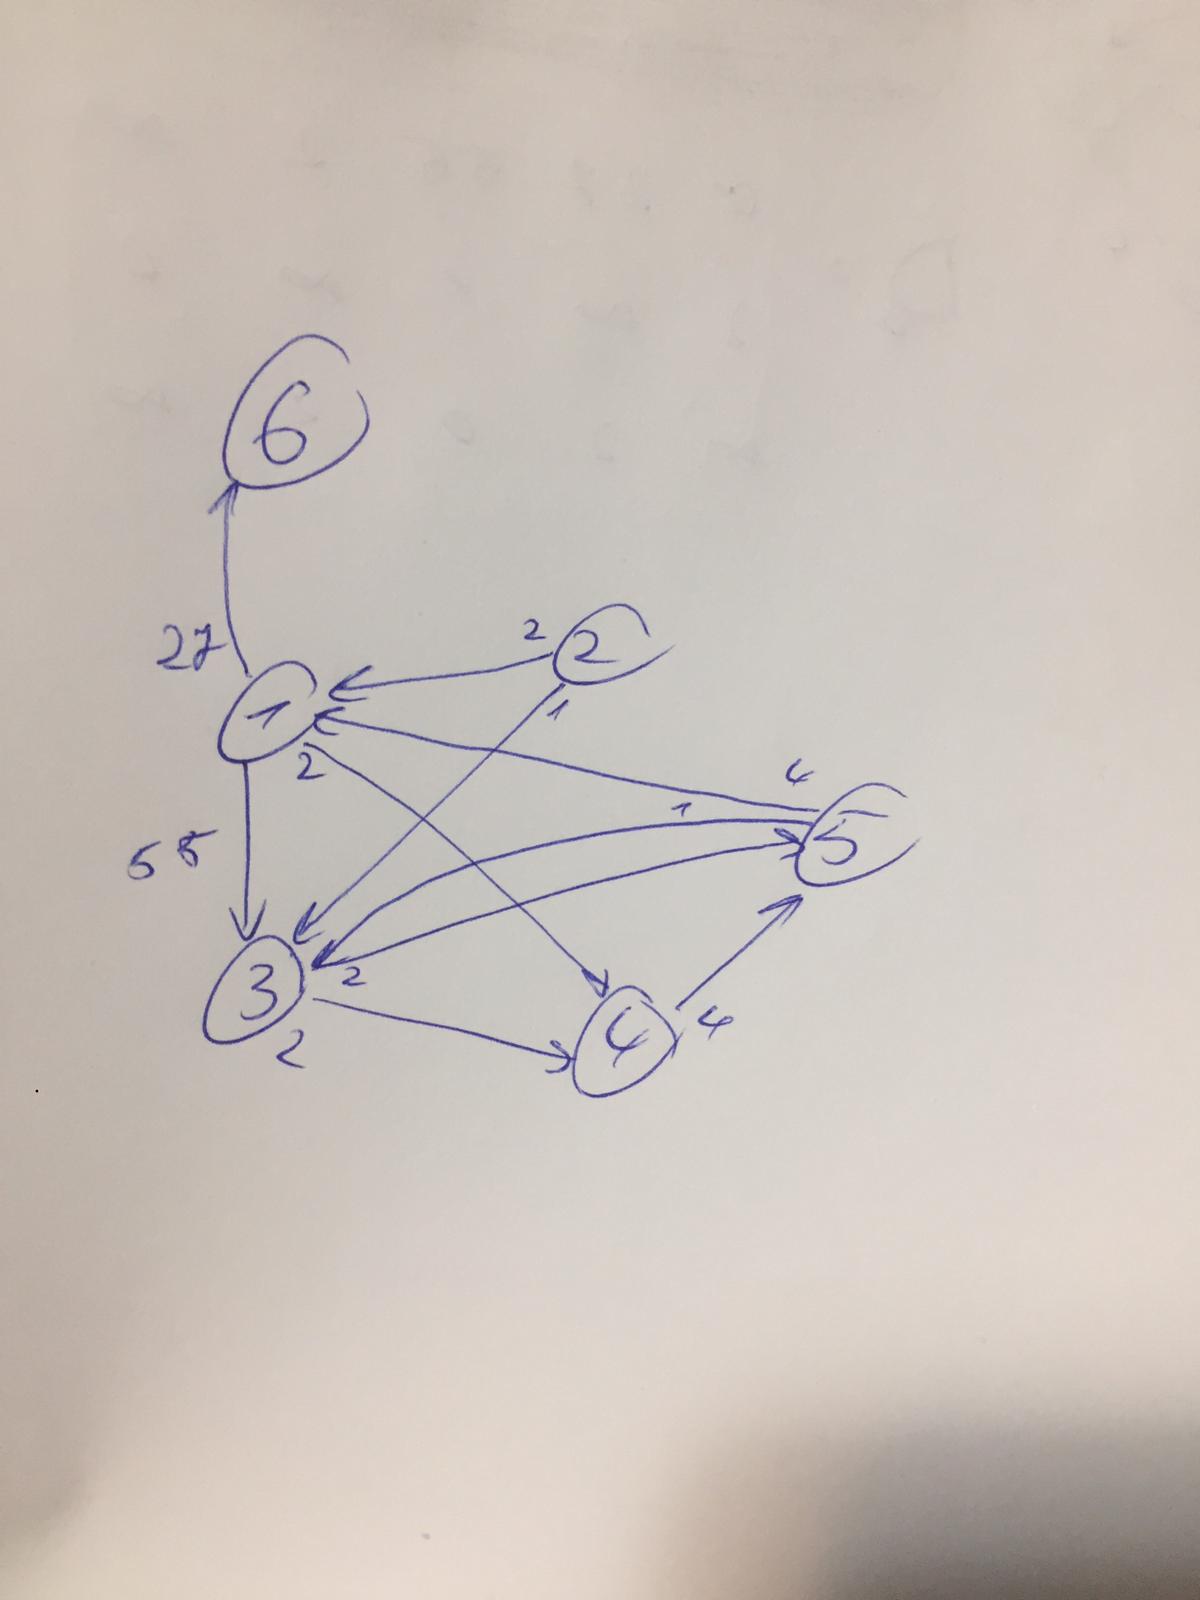 6
27
2 2
1
1
2
4
1
5
5 8
2
3
4
4
2